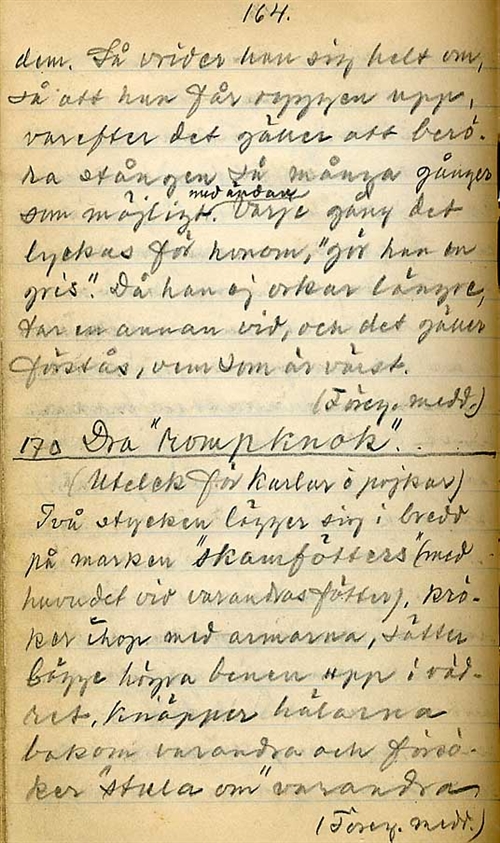 164.
dem. Så vrider han sig helt om,
så att han får ryggen upp,
varefter det gäller att berö-
ra stången så många gånger
med ändan
som möjligt. Varje gång det
lyckas för honom, "gör han en
gris". Då han ej orkar längre,
tar en annan vid, och det gäller
förstås, vem som är värst.
(Föreg. medd.)
170 Dra "rompknok".
(Utelek för karlar o pojkar)
Två stycken lägger sig i bredd
på marken "skamfötters" (med
huvudet vid varandras fötter), krö-
ker ihop med armarna, sätter
bägge högra benen upp i väd-
ret, knäpper hälarna
bakom varandra och försö-
ker "stula om" varandra
(Föreg. medd.)